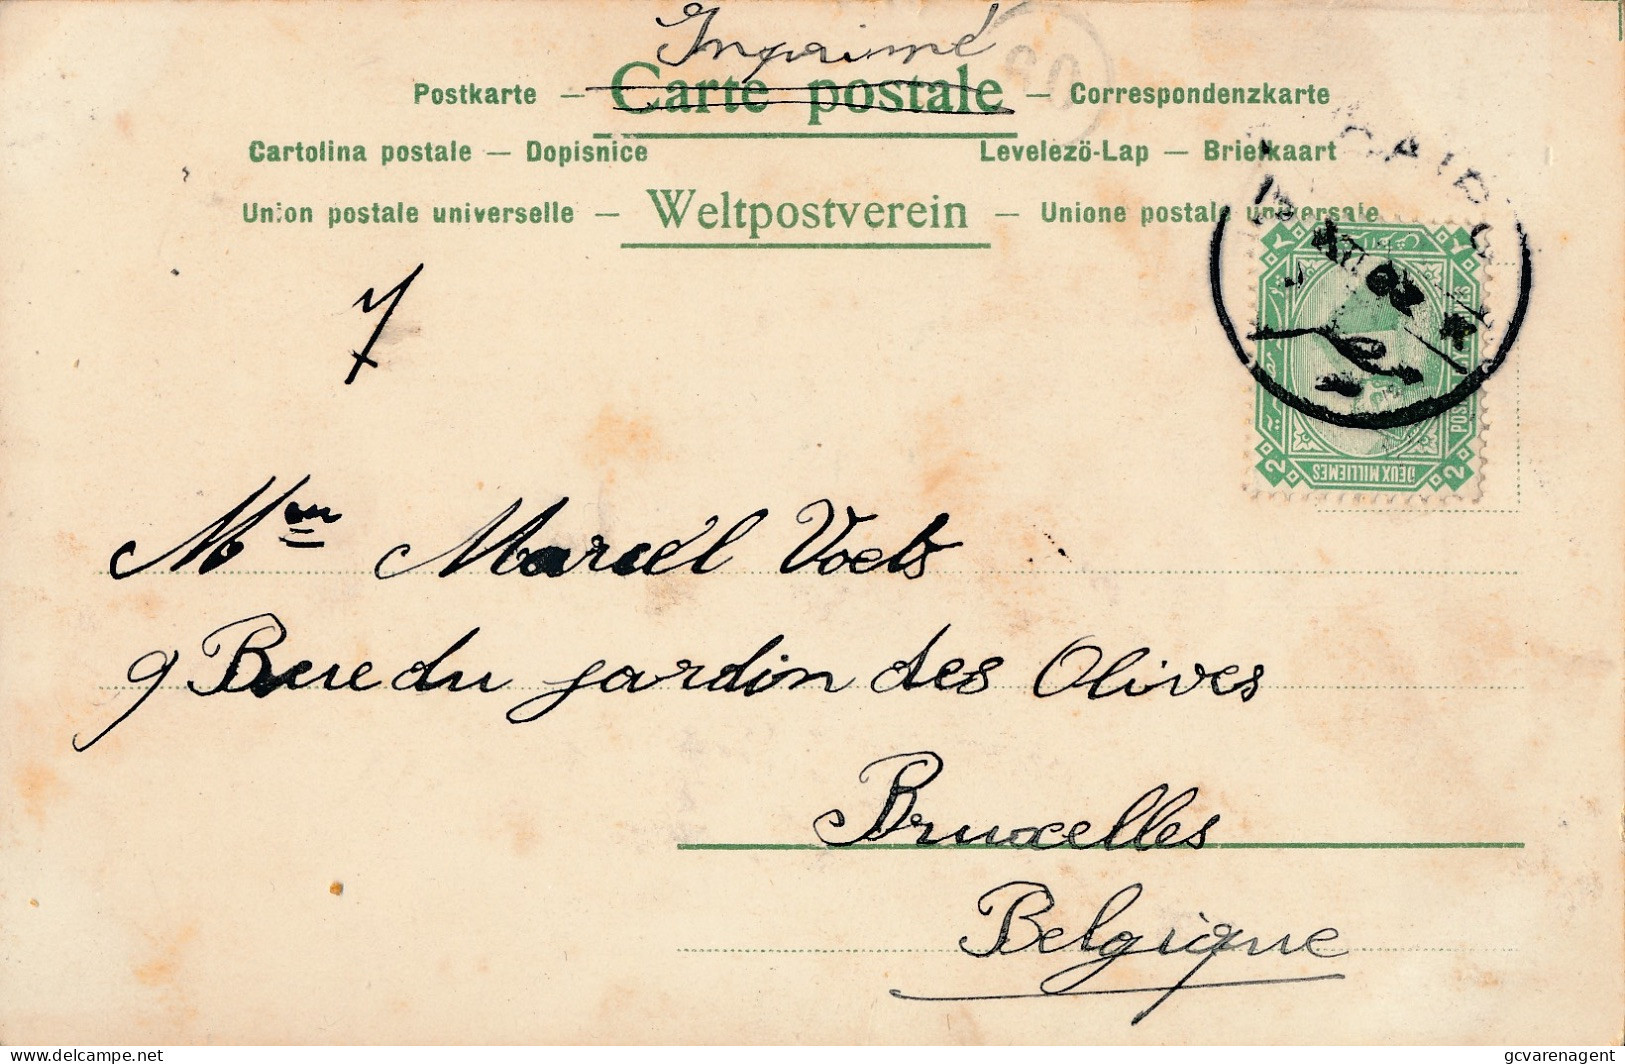 Imprimé
Postkarte — Carte postale — Correspondenzkarte
Cartolina postale — Dopisnice
Levelezö-Lap — Briefkaart
Union postale universelle — Weltpostverein — Unione postale universale
CAIRO
2 DEUX MILLIEMES 2
7
Mme Marcel Voets
9 Rue du jardin des Olives
Bruxelles
Belgique
delcampe.net
gcvarenagent